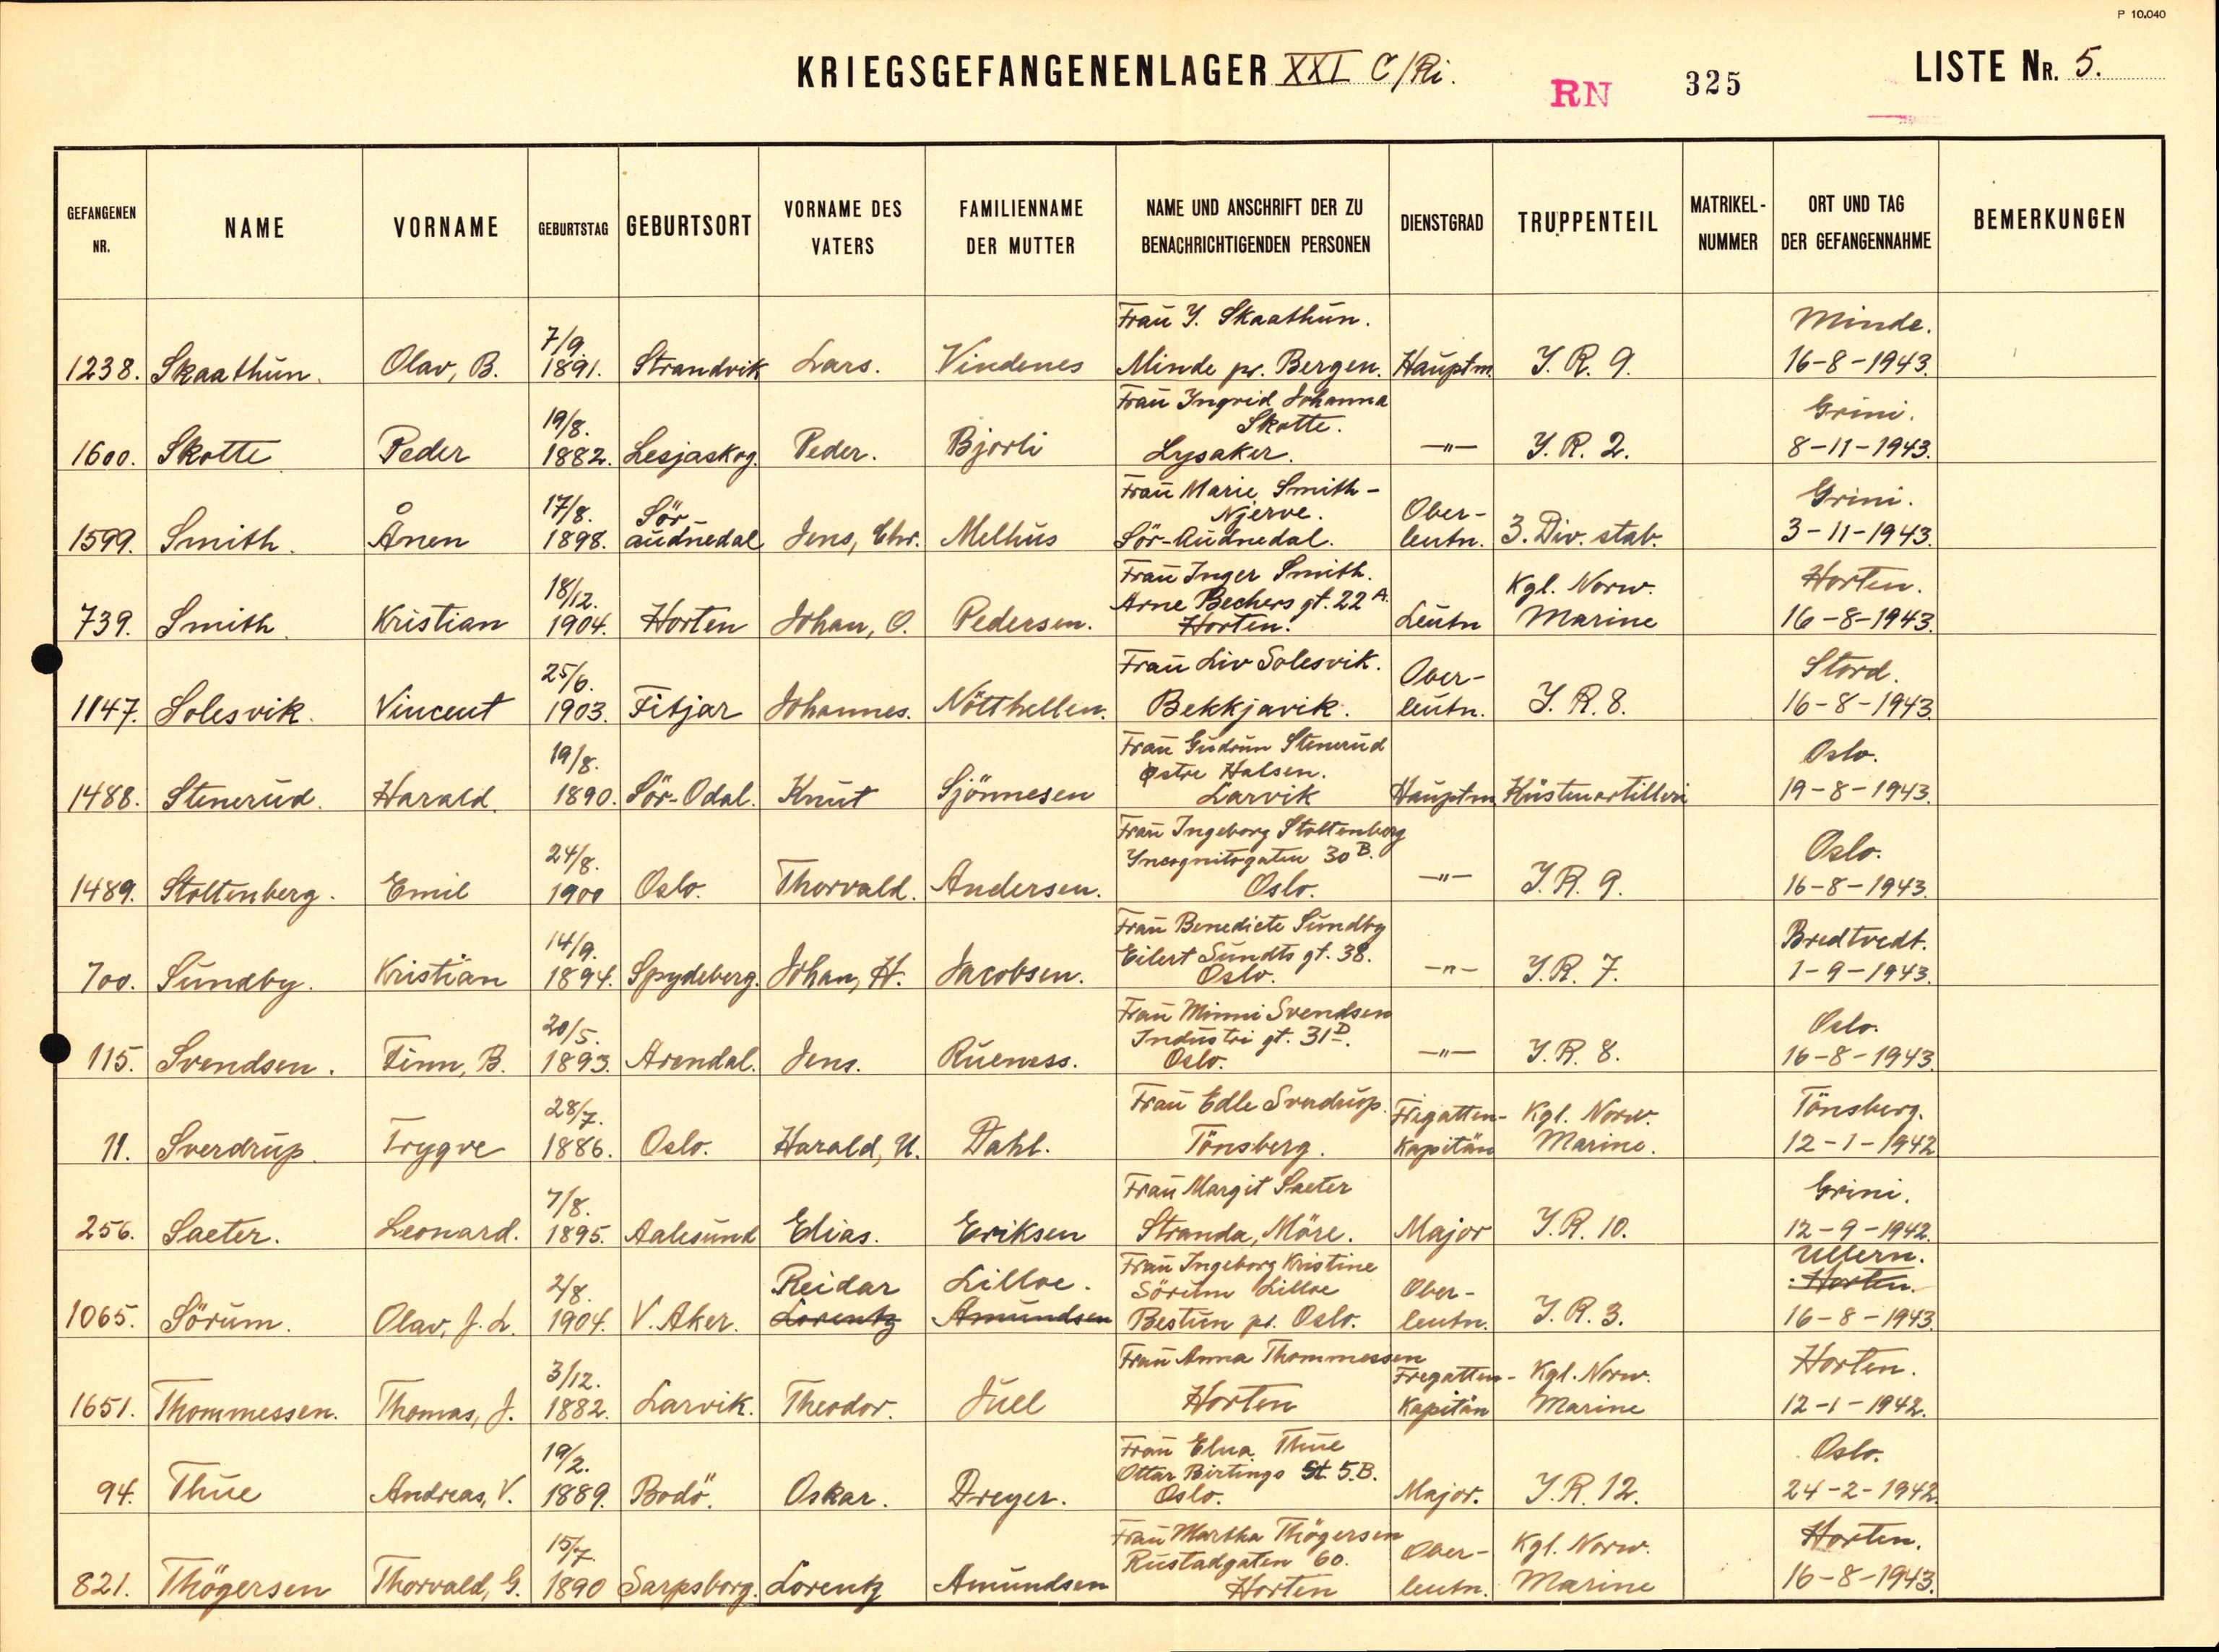 P 10.040
KRIEGSGEFANGENENLAGER XXI C/Ri.
RN 325
LISTE NR. 5.
GEFANGENEN NR. | NAME | VORNAME | GEBURTSTAG | GEBURTSORT | VORNAME DES VATERS | FAMILIENNAME DER MUTTER | NAME UND ANSCHRIFT DER ZU BENACHRICHTIGENDEN PERSONEN | DIENSTGRAD | TRUPPENTEIL | MATRIKEL-NUMMER | ORT UND TAG DER GEFANGENNAHME | BEMERKUNGEN
1238. Skaathun. Olav, B. 7/9. 1891. Strandvik Lars. Vindenes Frau Y. Skaathun. Minde pr. Bergen. Hauptm. J. R. 9. Minde. 16-8-1943.
1600. Skotte Peder 19/8. 1882. Lesjaskog. Peder. Bjorli Frau Ingrid Johanna Skotte. Lysaker. —"— J. R. 2. Grini. 8-11-1943.
1599. Smith. Ånen 17/8. 1898. Sör-audnedal Jens, Chr. Melhus Frau Marie Smith-Njerve. Sör-Audnedal. Ober-leutn. 3. Div. stab. Grini. 3-11-1943.
739. Smith. Kristian 18/12. 1904. Horten Johan, O. Pedersen. Frau Inger Smith. Arne Bechers gt. 22 A. Horten. Leutn Kgl. Norw. Marine Horten. 16-8-1943.
1147. Solesvik. Vincent 25/6. 1903. Fitjar Johannes. Nötthellen. Frau Liv Solesvik. Bekkjarvik. Ober-leutn. J. R. 8. Stord. 16-8-1943.
1488. Stenerud. Harald. 19/8. 1890. Sör-Odal. Knut Sjönnesen Frau Gudrun Stenerud Østre Halsen. Larvik Hauptm Küstenartilleri Oslo. 19-8-1943.
1489. Stoltenberg. Emil 24/8. 1900 Oslo. Thorvald. Andersen. Frau Ingeborg Stoltenberg Incognitogaten 30 B. Oslo. —"— J. R. 9. Oslo. 16-8-1943.
700. Sundby. Kristian 14/9. 1894. Spydeberg. Johan, H. Jacobsen. Frau Benedicte Sundby Eilert Sundts gt. 38. Oslo. —"— J. R. 7. Bredtvedt. 1-9-1943.
115. Svendsen. Finn, B. 20/5. 1893. Arendal. Jens. Rueness. Frau Minni Svendsen Industri gt. 31 D. Oslo. —"— J. R. 8. Oslo. 16-8-1943.
11. Sverdrup. Trygve 28/7. 1886. Oslo. Harald, U. Dahl. Frau Edle Sverdrup. Tönsberg. Fregatten-Kapitän Kgl. Norw. Marine. Tönsberg. 12-1-1942
256. Saeter. Leonard. 7/8. 1895. Aalesund Elias. Eriksen Frau Margit Saeter Stranda, Möre. Major J. R. 10. Grini. 12-9-1942.
1065. Sörum. Olav, J. L. 2/8. 1904. V. Aker. Reidar Lorentz Lilloe. Amundsen Frau Ingeborg Kristine Sörum Lilloe Bestun pr. Oslo. Ober-leutn. J. R. 3. Ullern. Horten. 16-8-1943.
1651. Thommessen. Thomas, J. 3/12. 1882. Larvik. Theodor. Juel Frau Anna Thommessen Horten Fregatten-Kapitän Kgl. Norw. Marine Horten. 12-1-1942.
94. Thue Andreas, V. 19/2. 1889. Bodö. Oskar. Dreyer. Frau Elna Thue Ottar Birtings St. 5.B. Oslo. Major. J. R. 12. Oslo. 24-2-1942.
821. Thögersen Thorvald, G. 15/7. 1890 Sarpsborg. Lorentz Amundsen Frau Martha Thögersen Rustadgaten 60. Horten Ober-leutn. Kgl. Norw. Marine Horten. 16-8-1943.